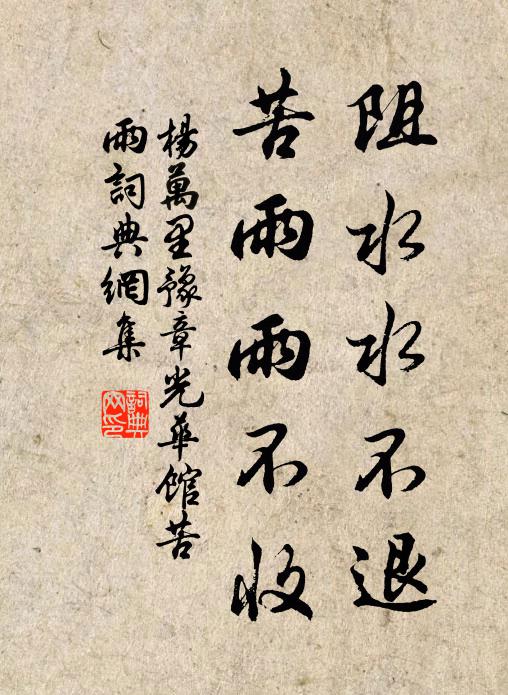 阻水水不退
苦雨雨不收
楊萬里豫章光華館苦
雨詞典網集
詞典網印